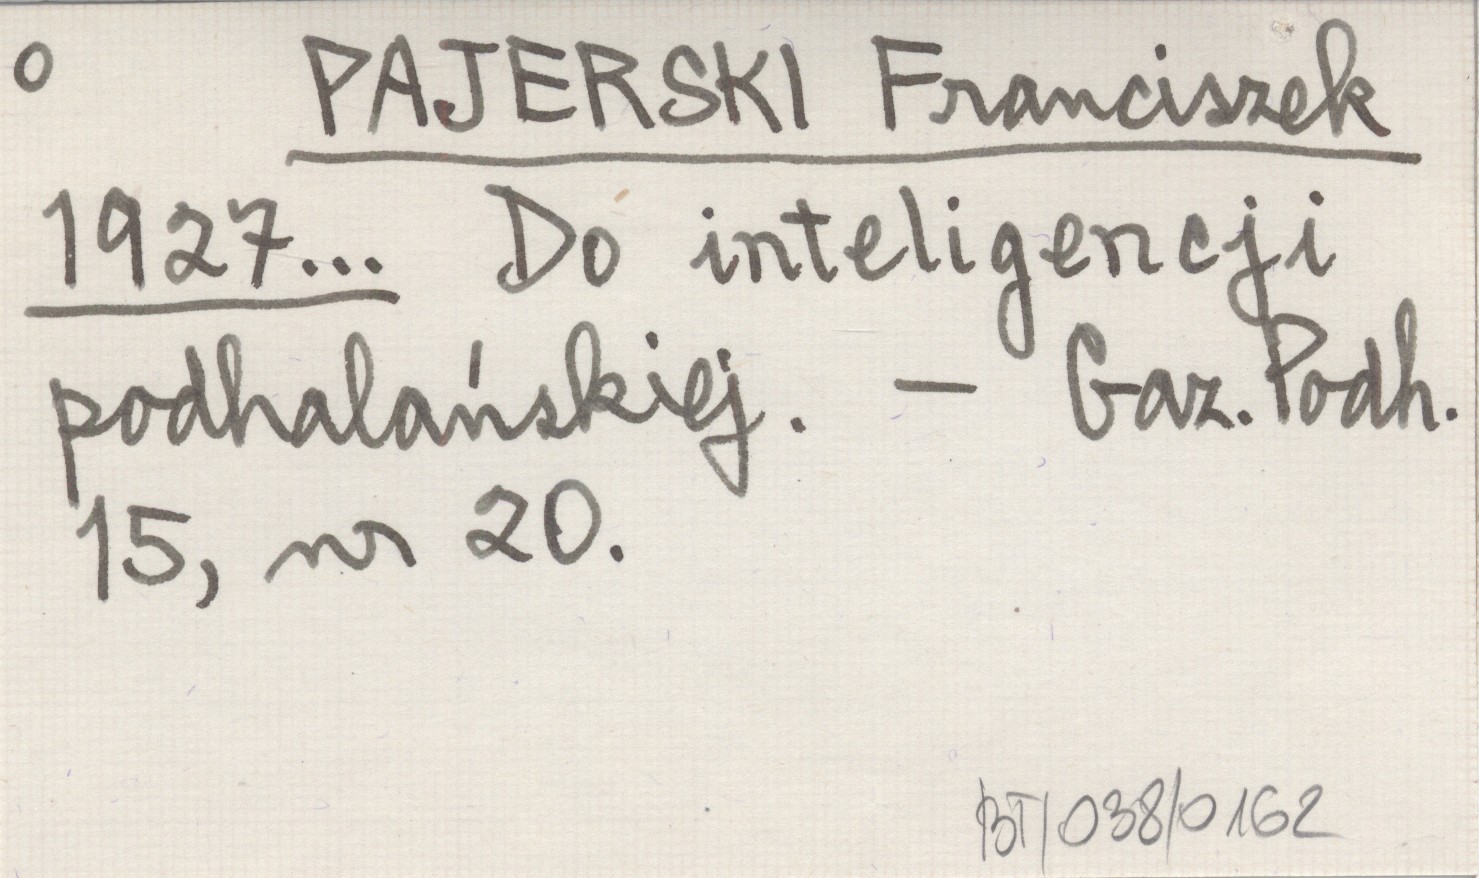 o PAJERSKI Franciszek
1927... Do inteligencji
podhalańskiej. – Gaz. Podh.
15, nr 20.
BT/038/0162